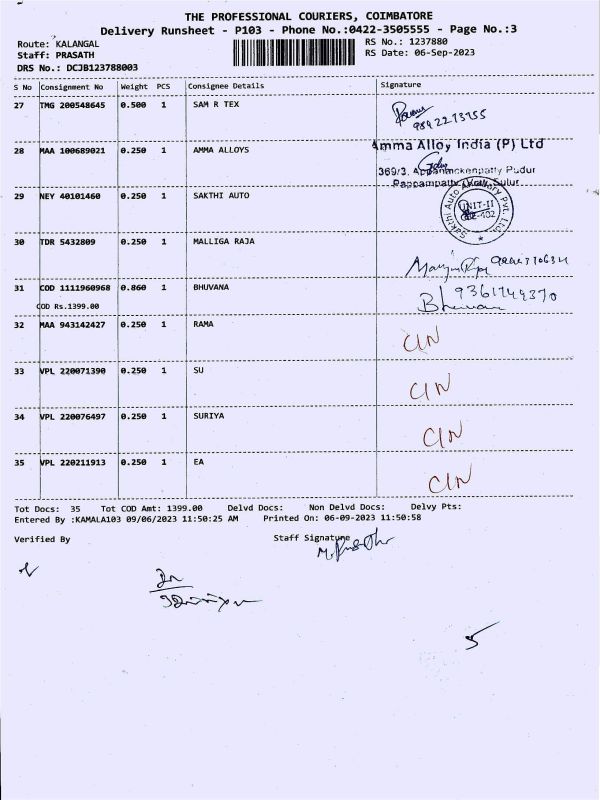 THE PROFESSIONAL COURIERS, COIMBATORE
Delivery Runsheet - P103 - Phone No.:0422-3505555 - Page No.:3
Route: KALANGAL
RS No.: 1237880
Staff: PRASATH
RS Date: 06-Sep-2023
DRS No.: DCJB123788003
S No Consignment No Weight PCS Consignee Details Signature
27 TMG 200548645 0.500 1 SAM R TEX
28 MAA 100689021 0.250 1 AMMA ALLOYS
Amma Alloy India (P) Ltd
369/3, Appanaickenpatty Pudur
Pappampatty Sulur
29 NEY 40101460 0.250 1 SAKTHI AUTO
UNIT-II
30 TDR 5432809 0.250 1 MALLIGA RAJA
31 COD 1111960968 0.860 1 BHUVANA
9361749370
COD Rs.1399.00
32 MAA 943142427 0.250 1 RAMA CIN
33 VPL 220071390 0.250 1 SU CIN
34 VPL 220076497 0.250 1 SURIYA CIN
35 VPL 220211913 0.250 1 EA CIN
Tot Docs: 35 Tot COD Amt: 1399.00 Delvd Docs: Non Delvd Docs: Delvy Pts:
Entered By :KAMALA103 09/06/2023 11:50:25 AM Printed On: 06-09-2023 11:50:58
Verified By
Staff Signature